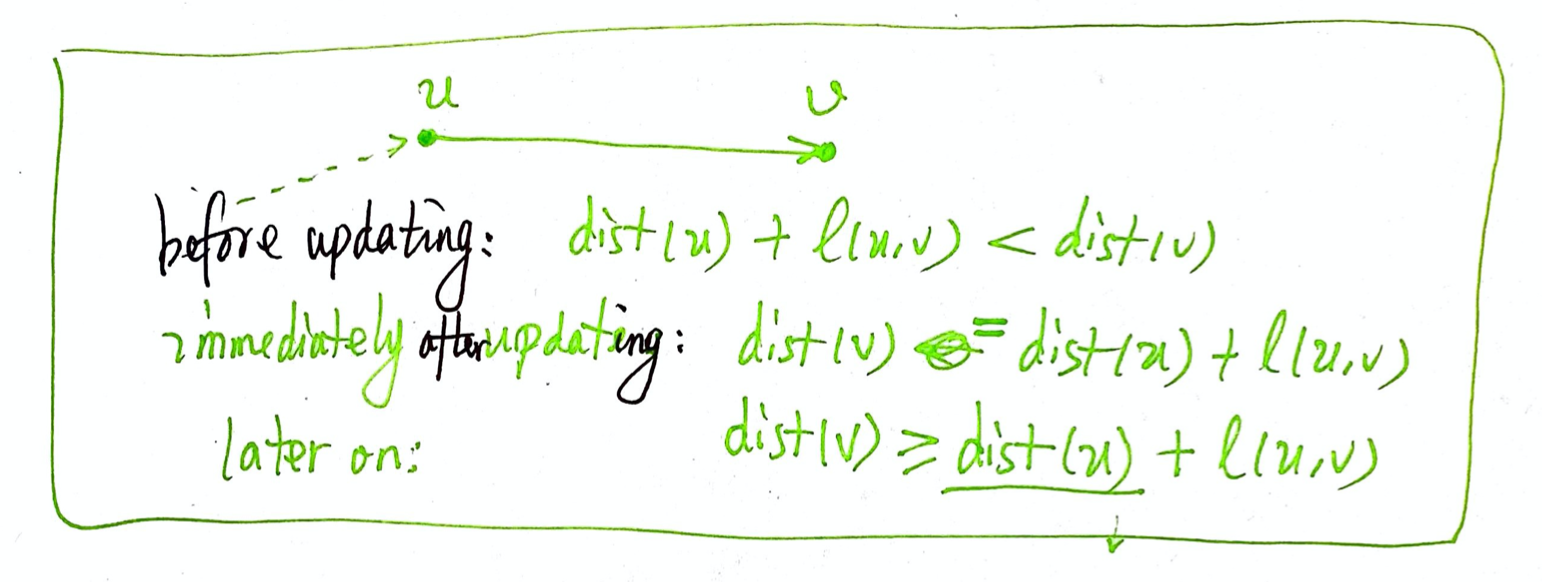 u v
before updating: dist(u) + l(u,v) < dist(v)
immediately after updating: dist(v) = dist(u) + l(u,v)
later on: dist(v) ≥ dist(u) + l(u,v)